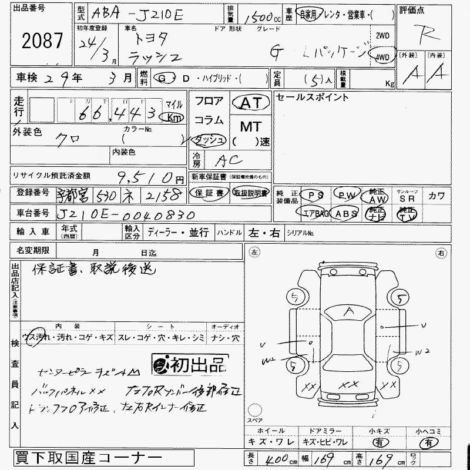 出品番号 2087
型式 ABA-J210E 排気量 1500cc 車歴 自家用・レンタ・営業車・( ) 評価点 R
初年度登録 24/3月 車名 トヨタ ラッシュ ドア 形状 グレード G Lパッケージ 2WD 4WD
外装 A 内装 A
車検 29年 3月 燃料 G・D・ハイブリッド・( ) 定員 (5)人 積載量 Kg
走行 66,443 マイル Km
フロア コラム ダッシュ AT MT ( )速
セールスポイント
外装色 クロ カラー№( )
内装色( ) 冷房 AC
リサイクル預託済金額 9,510円
新車保証書 保証書 取扱説明書
登録番号 宇都宮 530 ネ 2158
純正装備品 PS PW 純正AW サンルーフ SR カワ
エアBAG ABS 純正ナビ 純正TV
車台番号 J210E-0040830
輸入車 年式(西暦) 輸入区分 ディーラー・並行 ハンドル 左・右 シリアル№
名変期限 月 日迄
出品店記入(注意事項) 保証書、取説後送
左 右
検査員記入
内装 シート オーディオ
ウス汚れ・汚れ・コゲ・キズ スレ・コゲ・穴・キレ・シミ ナシ・穴
初出品
A
S S S S
U W2 U W2
XX XX
スペア
ホイール ドアミラー 小キズ 小ヘコミ
キズ・ワレ キズ・ヒビ・ワレ 有 有
長さ 400cm 幅 169cm 高さ 169cm
買下取国産コーナー